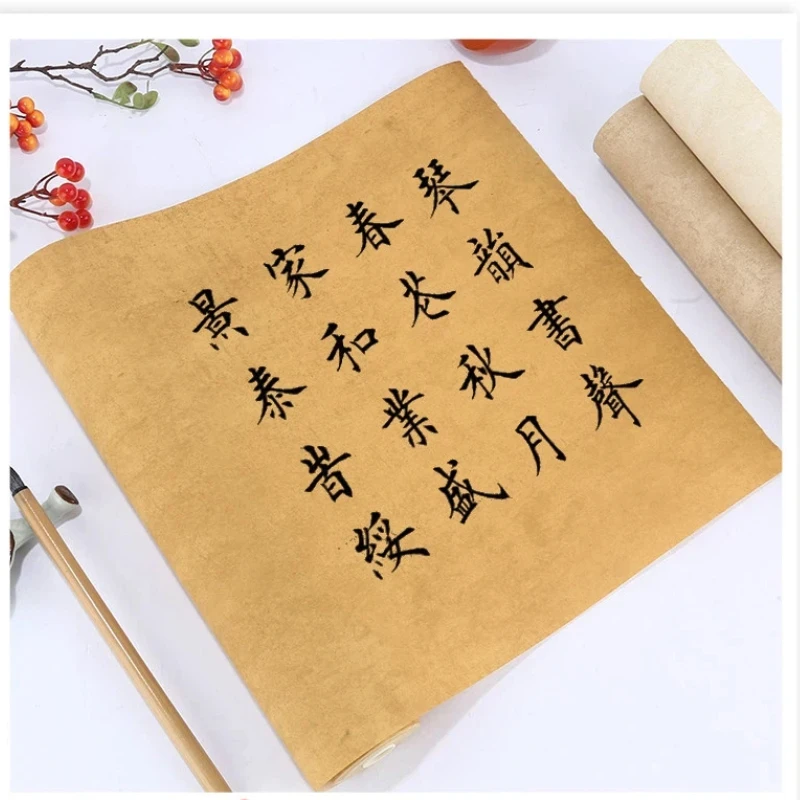 琴韻書聲
春花秋月
家和業盛
景泰旹綏